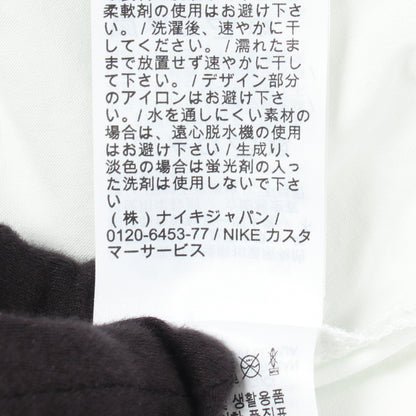 柔軟剤の使用はお避け下さ
い。/ 洗濯後、速やかに干
してください。/ 濡れたま
まで放置せず速やかに干し
て下さい。/ デザイン部分
のアイロンはお避け下さ
い。/ 水を通しにくい素材の
場合は、遠心脱水機の使用
はお避け下さい / 生成り、
淡色の場合は蛍光剤の入っ
た洗剤は使用しないで下さ
い
（株）ナイキジャパン /
0120-6453-77 / NIKE カスタ
マーサービス
생활용품